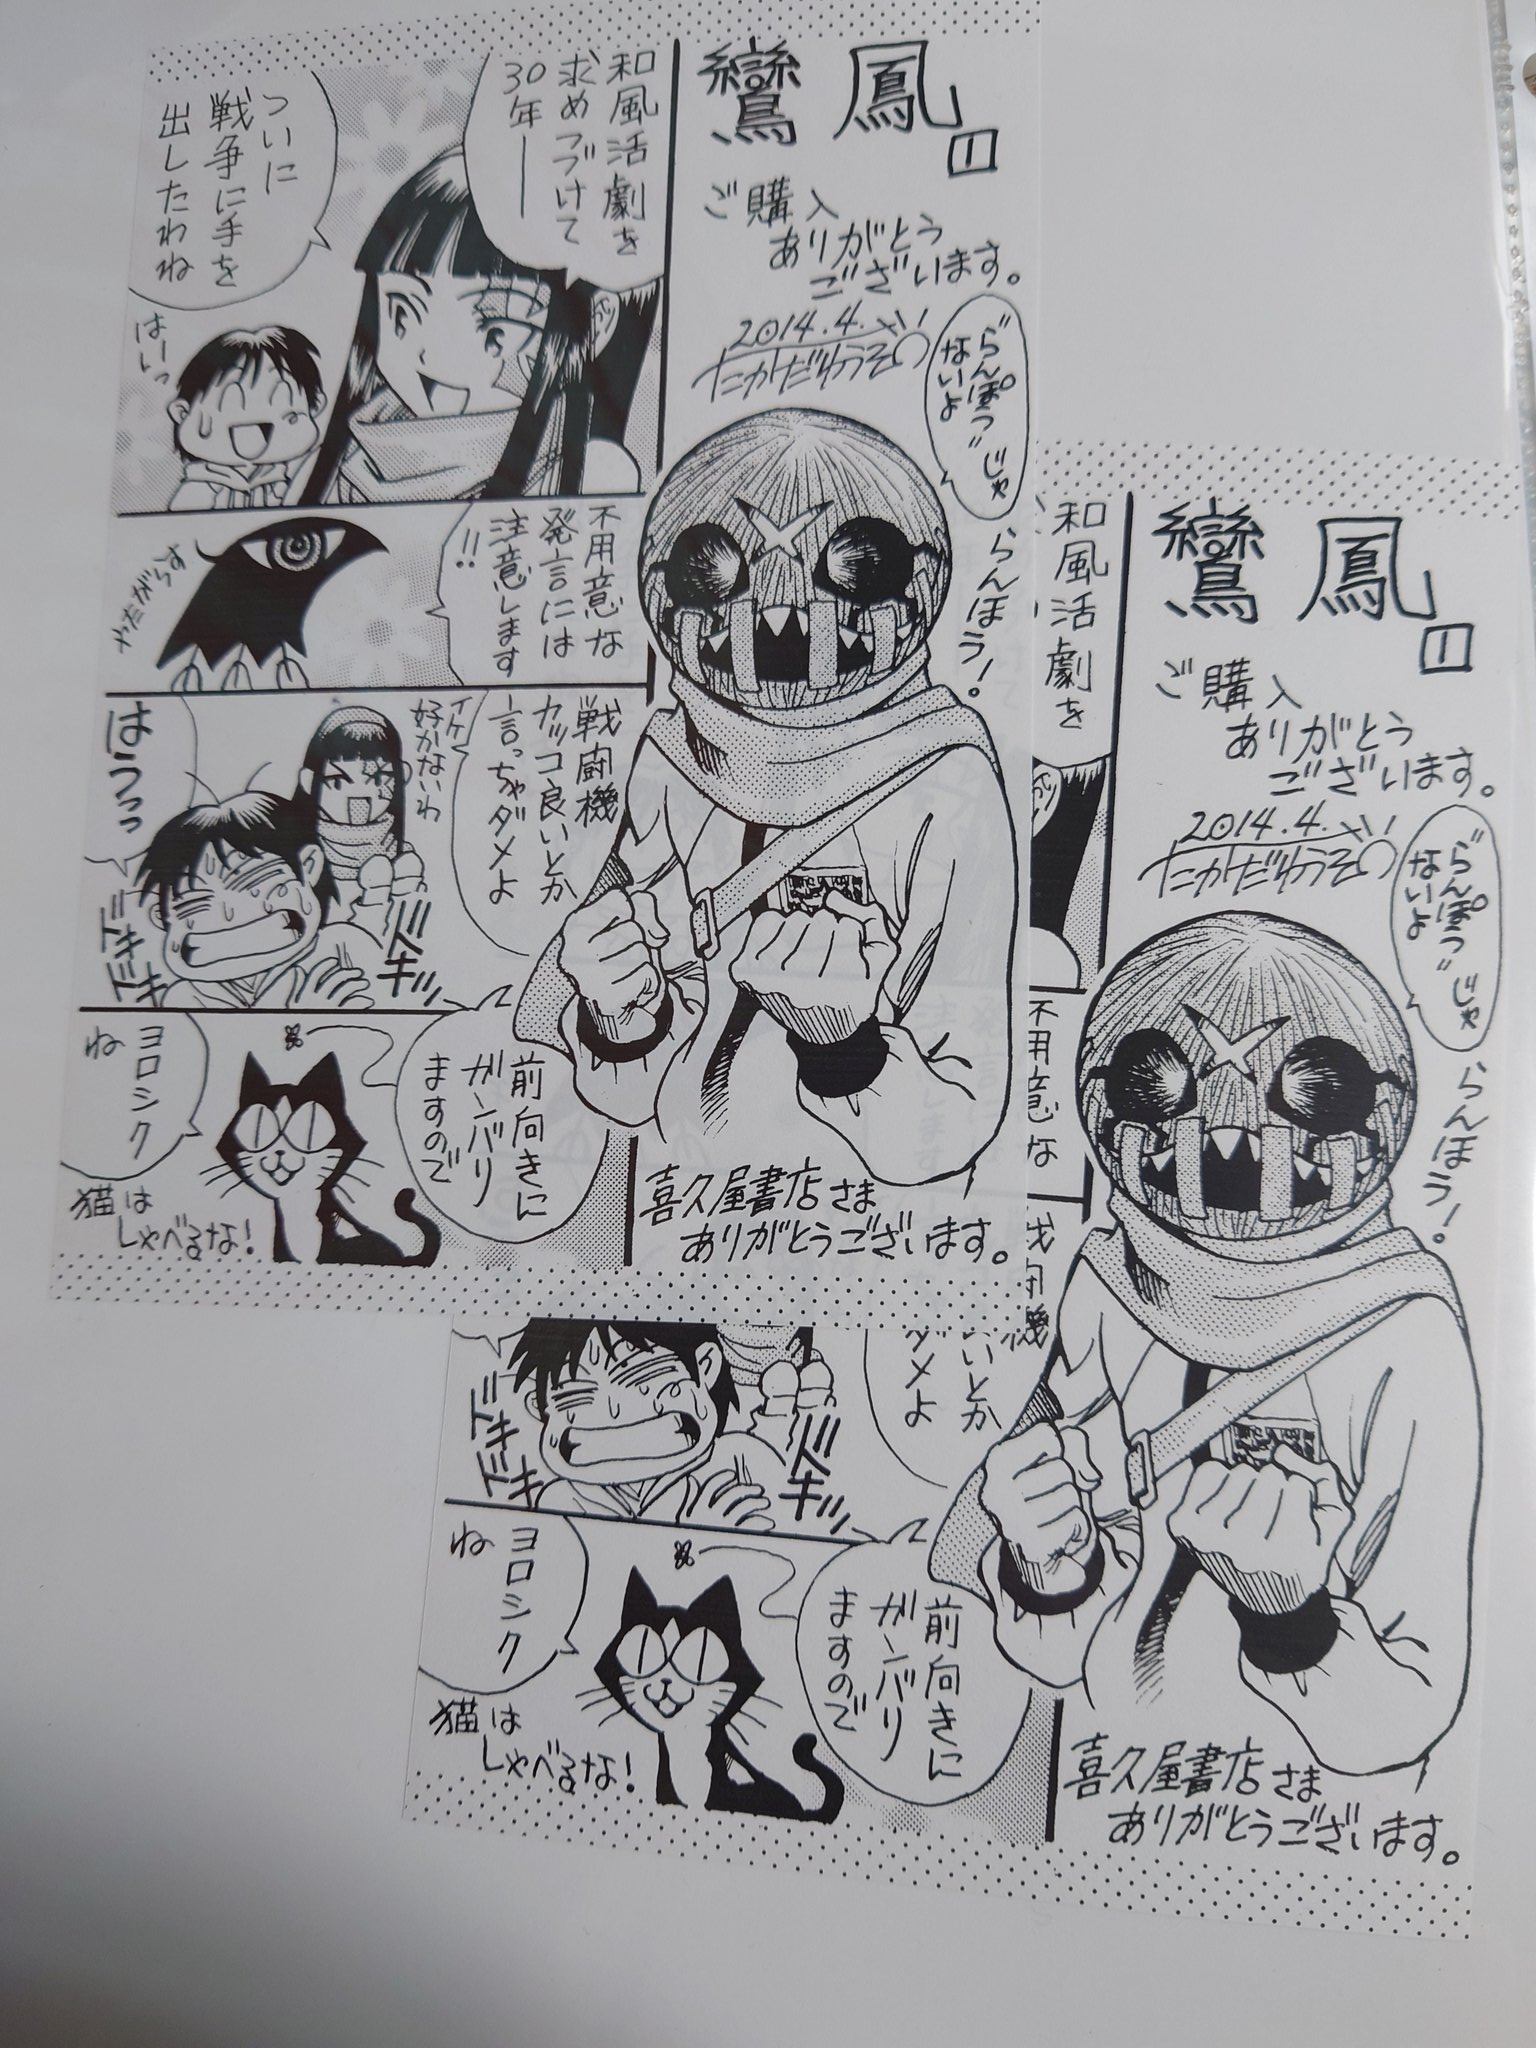 鸞鳳 1
ご購入
ありがとう
ございます。
2014.4.
たかだゆうぞう
"らんぽう"じゃ
ないよ
らんほう!
喜久屋書店さま
ありがとうございます。
和風活劇を
求めつづけて
30年—
ついに
戦争に手を
出したわね
はーいっ
不用意な
発言には
注意します
!!
やたがらす
戦闘機
カッコ良いとか
言っちゃダメよ
イケ
好かないわ
はうっっ
ドキ
ドキ
ドキッ
前向きに
ガンバリ
ますので
ヨロシク
ね
猫は
しゃべるな!
鸞鳳 1
ご購入
ありがとう
ございます。
2014.4.
たかだゆうぞう
"らんぽう"じゃ
ないよ
らんほう!
喜久屋書店さま
ありがとうございます。
和風活劇を
不用意な
機
いいとか
ダメよ
ドキ
ドキ
ドキッ
前向きに
ガンバリ
ますので
ヨロシク
ね
猫は
しゃべるな!